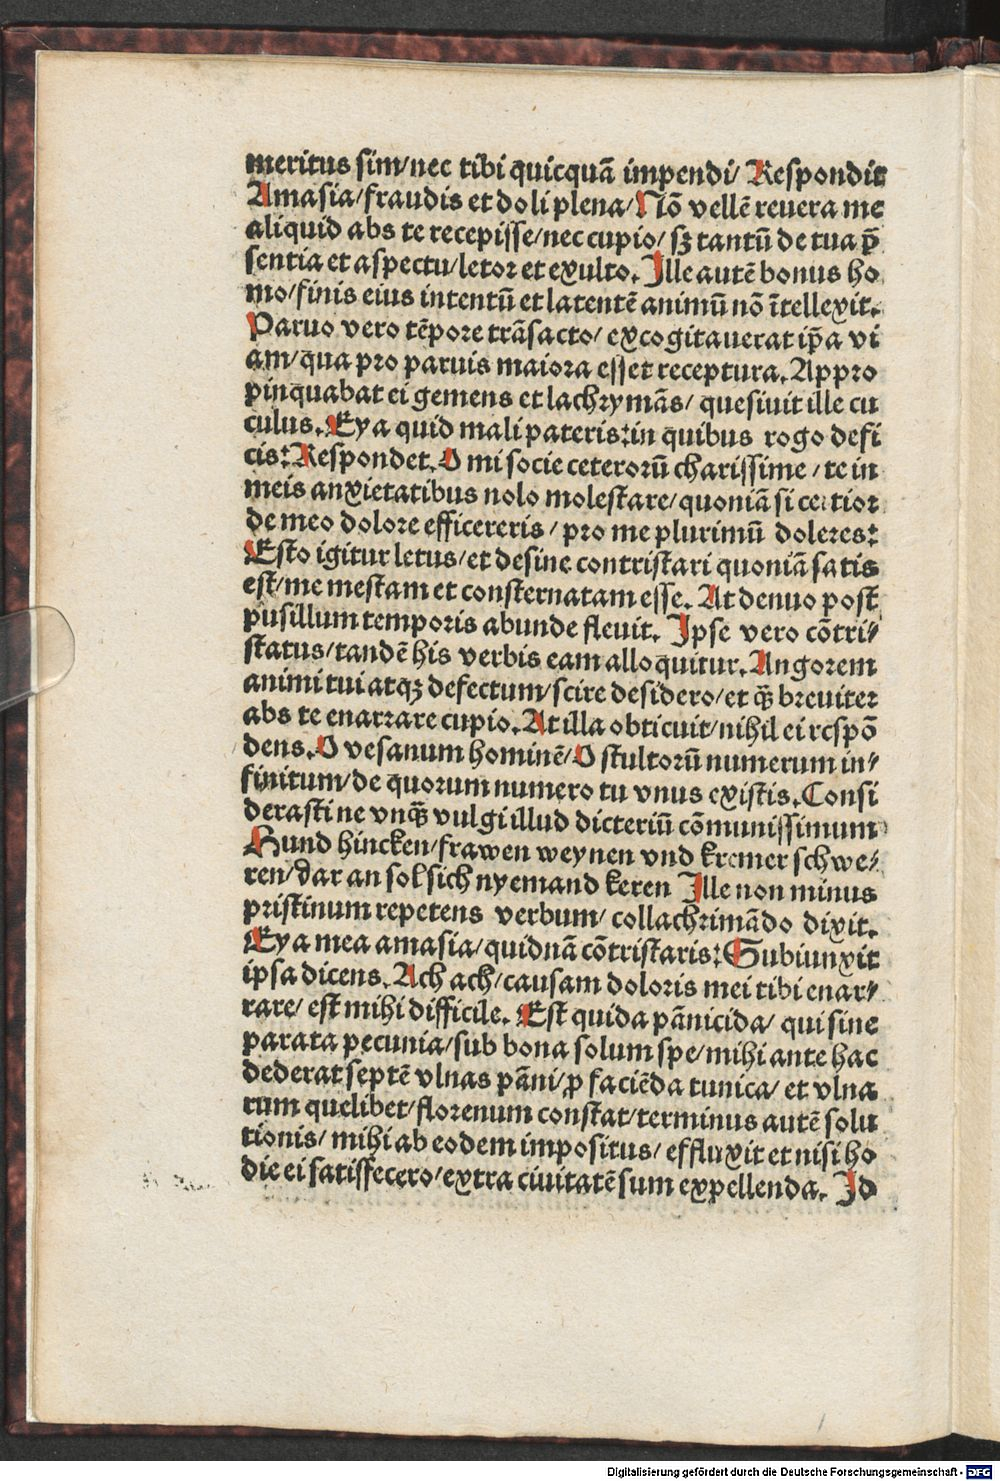 meritus sim/nec tibi quicquā impendi/ Respondit
Amasia/fraudis et doli plena/Nō vellē reuera me
aliquid abs te recepisse/nec cupio/ sꝫ tantū de tua p̄
sentia et aspectu/letor et exulto. Ille autē bonus ho
mo/finis eius intentū et latentē animū nō ītellexit.
Paruo vero tēpore trāsacto/ excogitauerat ip̄a vi
am/qua pro paruis maiora esset receptura. Appro
pinquabat ei gemens et lachrymās/ quesiuit ille cu
culus. Eya quid mali pateris: in quibus rogo defi
cis: Respondet. O mi socie ceterorū charissime/te in
meis anxietatibus nolo molestare/quoniā si certior
de meo dolore efficereris/pro me plurimū doleres:
Esto igitur letus/et desine contristari quoniā satis
est/me mestam et consternatam esse. At denuo post
pusillum temporis abunde fleuit. Ipse vero cōtri⸗
status/tandē his verbis eam alloquitur. Angorem
animi tui atqꝫ defectum/scire desidero/et q̄ꝫ breuiter
abs te enarrare cupio. At illa obticuit/nihil ei respō
dens. O vesanum hominē/O stultorū numerum in⸗
finitum/de quorum numero tu vnus existis. Consi
derasti ne vnq̄ꝫ vulgi illud dicteriū cōmunissimum
Hund hincken/frawen weynen vnd kremer schwe⸗
ren/dar an sol sich nyemand keren Ille non minus
pristinum repetens verbum/ collachrimādo dixit.
Eya mea amasia/quidnā cōtristaris: Subiunxit
ipsa dicens. Ach ach/causam doloris mei tibi enar⸗
rare/ est mihi difficile. Est quida pānicida/ qui sine
parata pecunia/sub bona solum spe/mihi ante hac
dederat septē vlnas pāni/ꝓ faciēda tunica/ et vlna
rum quelibet/florenum constat/terminus autē solu
tionis/ mihi ab eodem impositus/ effluxit et nisi ho
die ei satisfecero/extra ciuitatē sum expellenda. Id
Digitalisierung gefördert durch die Deutsche Forschungsgemeinschaft - DFG